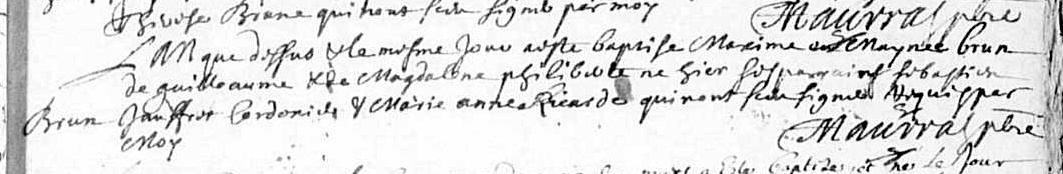 Therese Brune qui nont sceu signé par moy
Maurras ptre
L An que dessus & le mesme jour a esté baptisé Maxime Brun
de guilleaume & de Magdalene philiberte né hier ses parrains sebastien
Brun Jauffret Cordonier & Marie anne Ricarde qui nont sceu signer Requis par
Moy Maurras ptre
le Jour